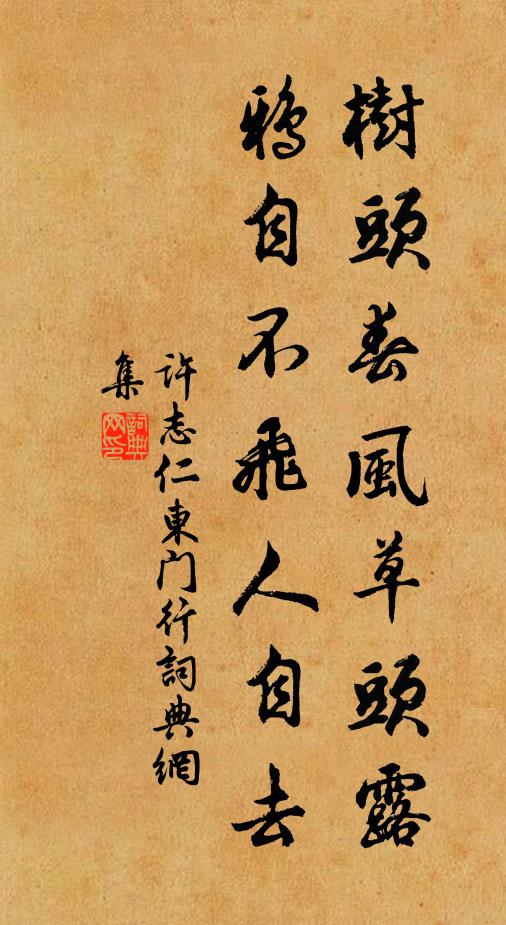 樹頭春風草頭露
鴉自不飛人自去
許志仁東門行詞典網
集
詞典
网印